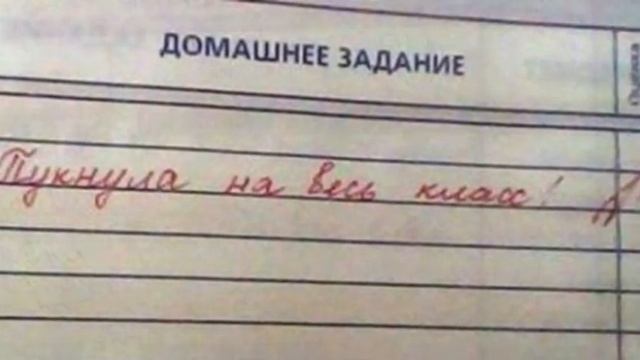 ДОМАШНЕЕ ЗАДАНИЕ
Пукнула на весь класс!